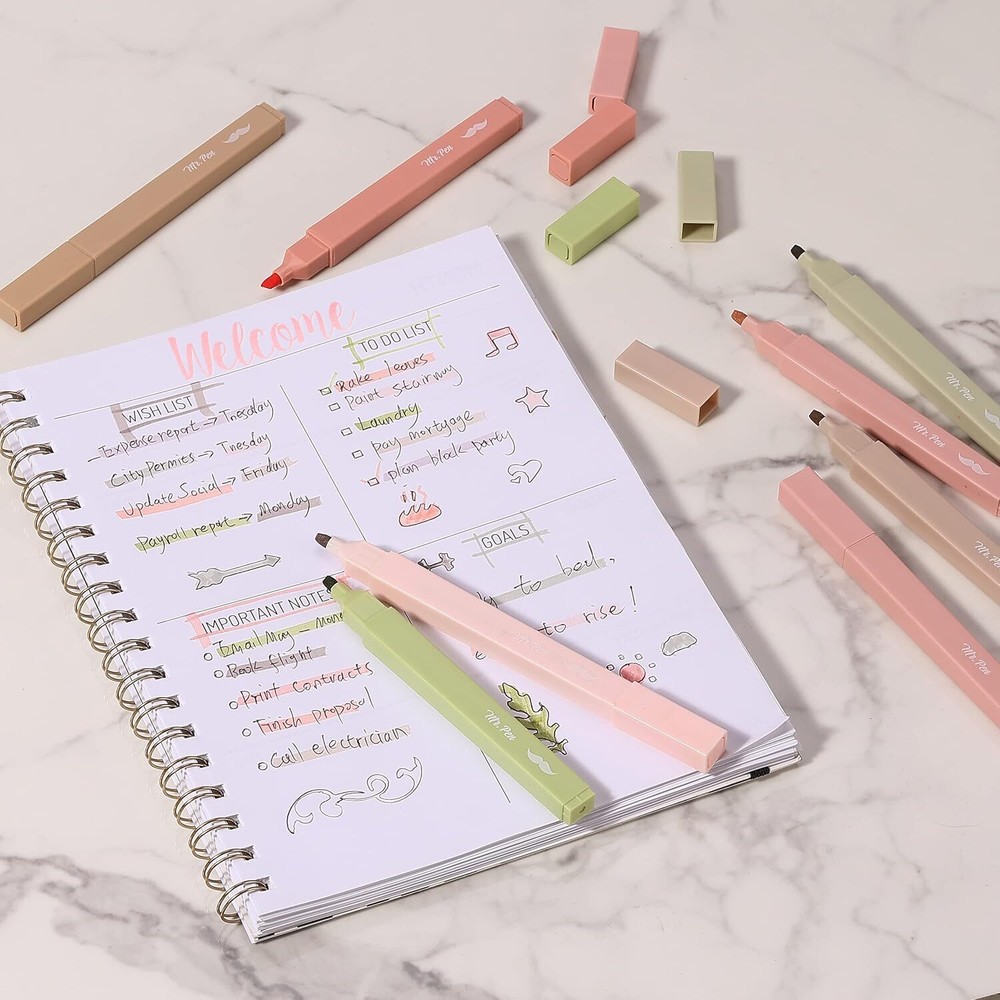 Welcome
WISH LIST
Expense report → Tuesday
City Permies → Tuesday
Update Social → Friday
Payroll report → Monday
TO DO LIST
Rake leaves
Paint stairway
Laundry
pay mortgage
plan block party
IMPORTANT NOTES
Email Muy -
Book flight
Print contracts
Finish proposal
Call electrician
GOALS
to bed,
to rise!
Mr. Pen
Mr. Pen
Mr. Pen
Mr. Pen
Mr. Pen
Mr. Pen
Mr. Pen